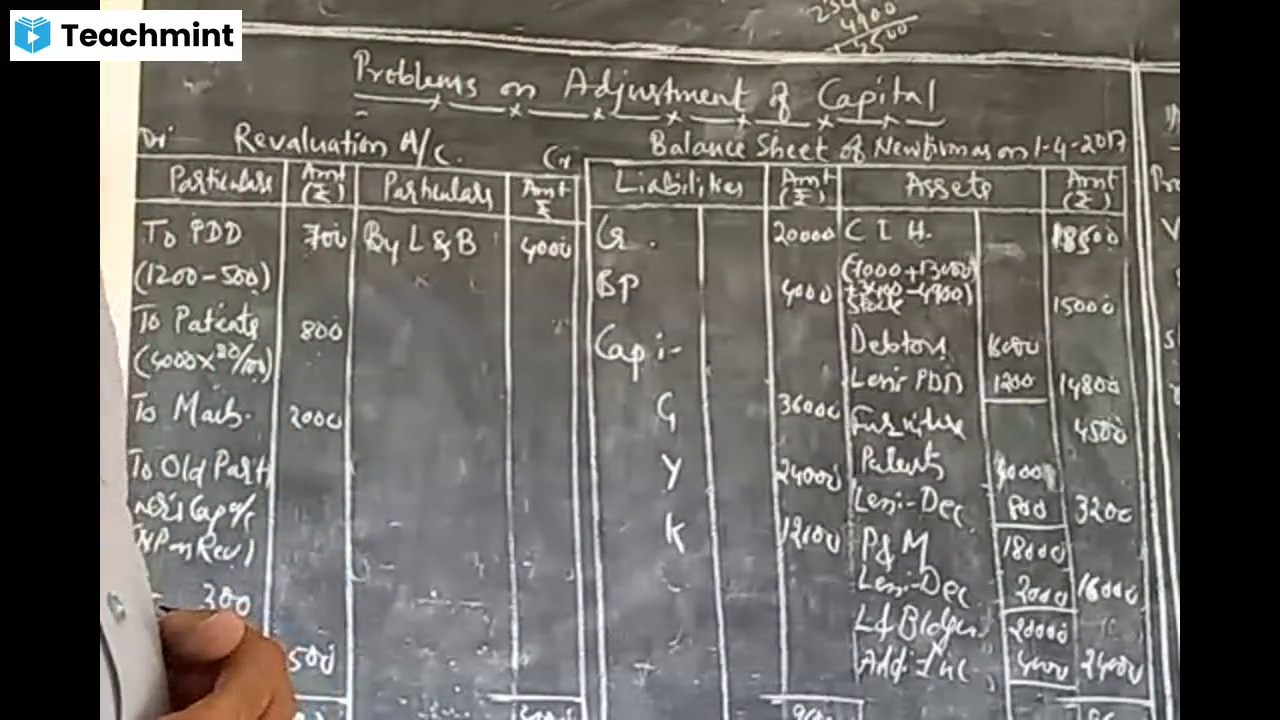 Teachmint
4900
Problems on Adjustment of Capital
Dr Revaluation A/C. Cr
Particulars Amt (₹) Particulars Amt ₹
To PDD 700 By L & B 4000
(1200-500)
To Patents 800
(4000×20/100)
To Mach. 2000
To Old Part
ner's Cap a/c
300
500
Balance Sheet of New firm as on 1-4-2017
Liabilities Amt (₹) Assets Amt (₹)
Cr. 20000 C I H. 18500
BP 4000 Stock 15000
Cap:-
Debtors 16000
Less:- PDD 1200 14800
G 36000 Furniture 4500
Y 24000 Patents 4000
Less:- Dec. 800 3200
K 12000 P & M 18000
Less:- Dec. 2000 16000
L & Bldgn. 20000
Add:- Inc. 4000 24000